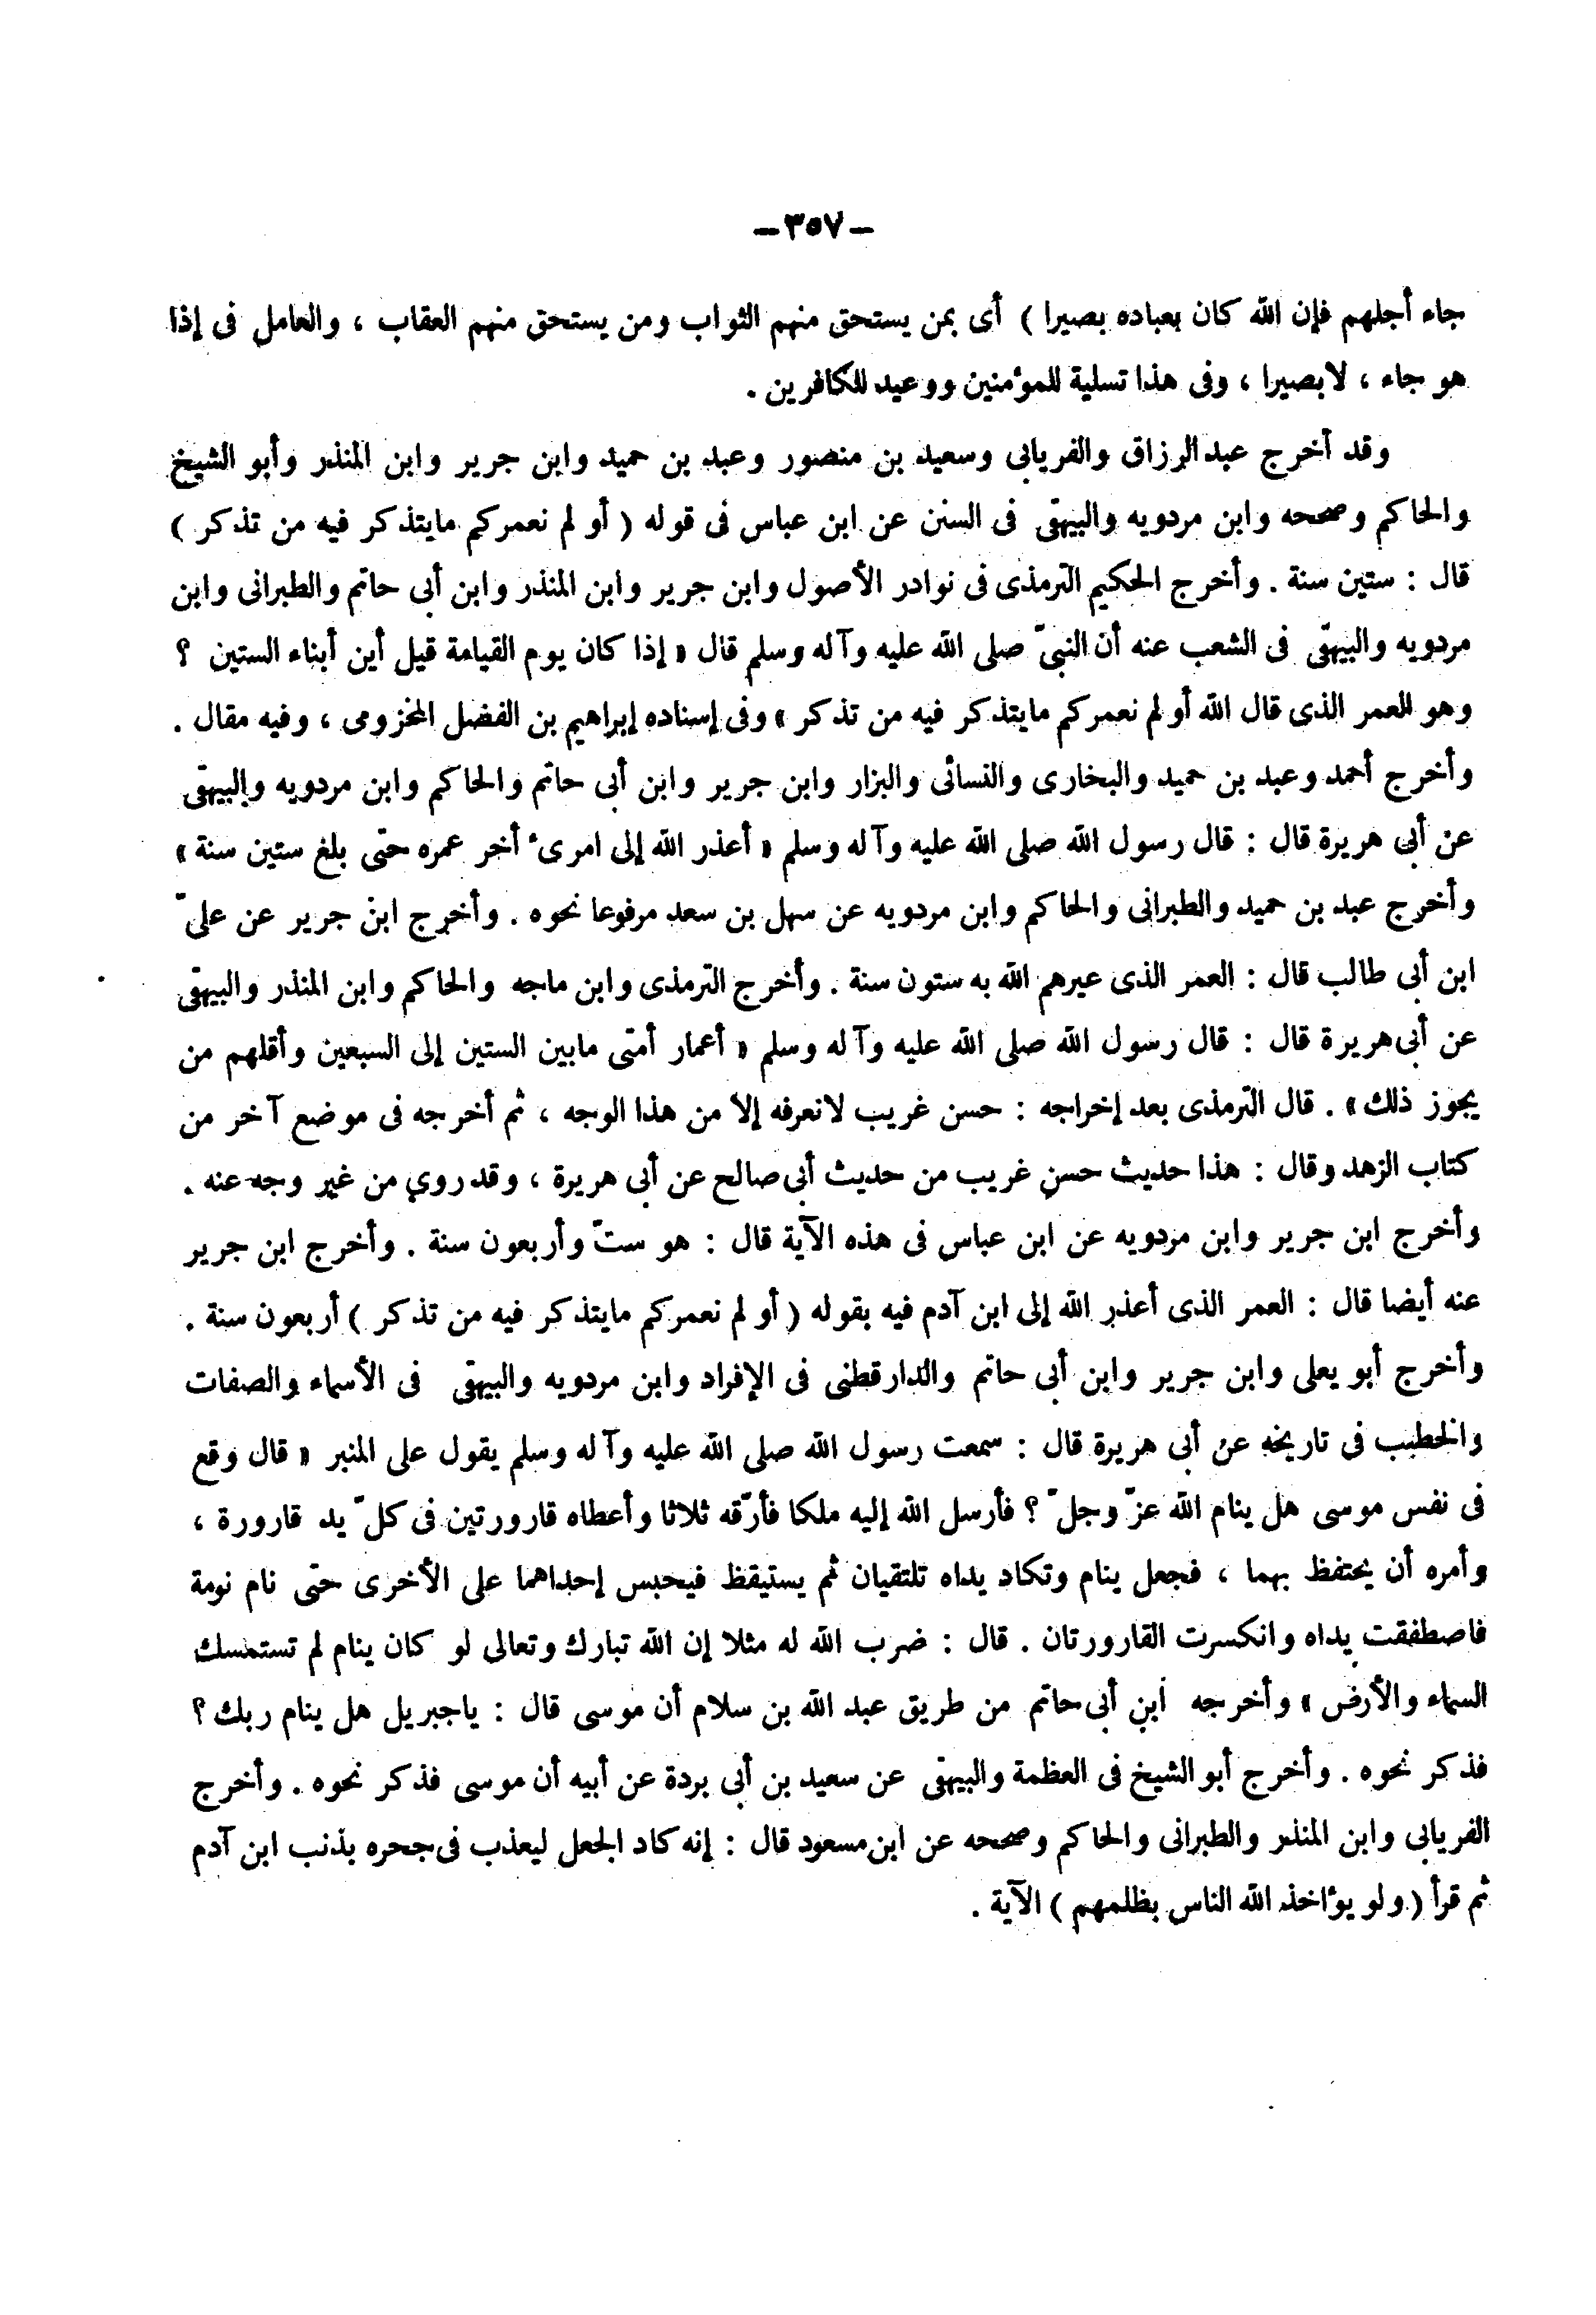 – ٣٥٧ –
جاء أجلهم فإن الله كان بعباده بصيرا ) أى بمن يستحق منهم الثواب ومن يستحق منهم العقاب ، والعامل فى إذا
هو جاء ، لابصيرا ، وفى هذا تسلية للمؤمنين ووعيد للكافرين .
وقد أخرج عبد الرزاق والفريابى وسعيد بن منصور وعبد بن حميد وابن جرير وابن المنذر وأبو الشيخ
والحاكم وصححه وابن مردويه والبيهقى فى السنن عن ابن عباس فى قوله ( أو لم نعمركم مايتذكر فيه من تذكر )
قال : ستين سنة . وأخرج الحكيم الترمذى فى نوادر الأصول وابن جرير وابن المنذر وابن أبى حاتم والطبرانى وابن
مردويه والبيهقى فى الشعب عنه أن النبىّ صلى الله عليه وآله وسلم قال « إذا كان يوم القيامة قيل أين أبناء الستين ؟
وهو العمر الذى قال الله أو لم نعمركم مايتذكر فيه من تذكر » وفى إسناده إبراهيم بن الفضل المخزومى ، وفيه مقال .
وأخرج أحمد وعبد بن حميد والبخارى والنسائى والبزار وابن جرير وابن أبى حاتم والحاكم وابن مردويه والبيهقى
عن أبى هريرة قال : قال رسول الله صلى الله عليه وآله وسلم « أعذر الله إلى امرىء أخر عمره حتى بلغ ستين سنة »
وأخرج عبد بن حميد والطبرانى والحاكم وابن مردويه عن سهل بن سعد مرفوعا نحوه . وأخرج ابن جرير عن علىّ
ابن أبى طالب قال : العمر الذى عيرهم الله به ستون سنة . وأخرج الترمذى وابن ماجه والحاكم وابن المنذر والبيهقى
عن أبى هريرة قال : قال رسول الله صلى الله عليه وآله وسلم « أعمار أمتى مابين الستين إلى السبعين وأقلهم من
يجوز ذلك » . قال الترمذى بعد إخراجه : حسن غريب لانعرفه إلا من هذا الوجه ، ثم أخرجه فى موضع آخر من
كتاب الزهد وقال : هذا حديث حسن غريب من حديث أبى صالح عن أبى هريرة ، وقد روي من غير وجه عنه .
وأخرج ابن جرير وابن مردويه عن ابن عباس فى هذه الآية قال : هو ستّ وأربعون سنة . وأخرج ابن جرير
عنه أيضا قال : العمر الذى أعذر الله إلى ابن آدم فيه بقوله ( أو لم نعمركم مايتذكر فيه من تذكر ) أربعون سنة .
وأخرج أبو يعلى وابن جرير وابن أبى حاتم والدارقطنى فى الإفراد وابن مردويه والبيهقى فى الأسماء والصفات
والخطيب فى تاريخه عن أبى هريرة قال : سمعت رسول الله صلى الله عليه وآله وسلم يقول على المنبر « قال وقع
فى نفس موسى هل ينام الله عزّ وجلّ ؟ فأرسل الله إليه ملكا فأرّقه ثلاثا وأعطاه قارورتين فى كلّ يد قارورة ،
وأمره أن يحتفظ بهما ، فجعل ينام وتكاد يداه تلتقيان ثم يستيقظ فيحبس إحداهما على الأخرى حتى نام نومة
فاصطفقت يداه وانكسرت القارورتان . قال : ضرب الله له مثلا إن الله تبارك وتعالى لو كان ينام لم تستمسك
السماء والأرض » وأخرجه ابن أبى حاتم من طريق عبد الله بن سلام أن موسى قال : ياجبريل هل ينام ربك ؟
فذكر نحوه . وأخرج أبو الشيخ فى العظمة والبيهقى عن سعيد بن أبى بردة عن أبيه أن موسى فذكر نحوه . وأخرج
الفريابى وابن المنذر والطبرانى والحاكم وصححه عن ابن مسعود قال : إنه كاد الجعل ليعذب فى جحره بذنب ابن آدم
ثم قرأ ( ولو يؤاخذ الله الناس بظلمهم ) الآية .